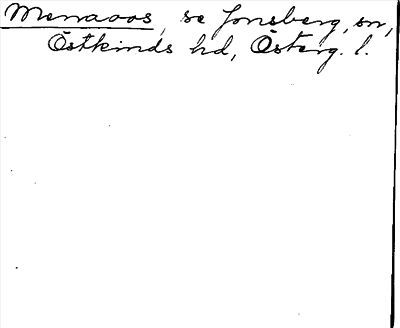 Menaoos, se Jonsberg, sn,
Östkinds hd, Österg. l.